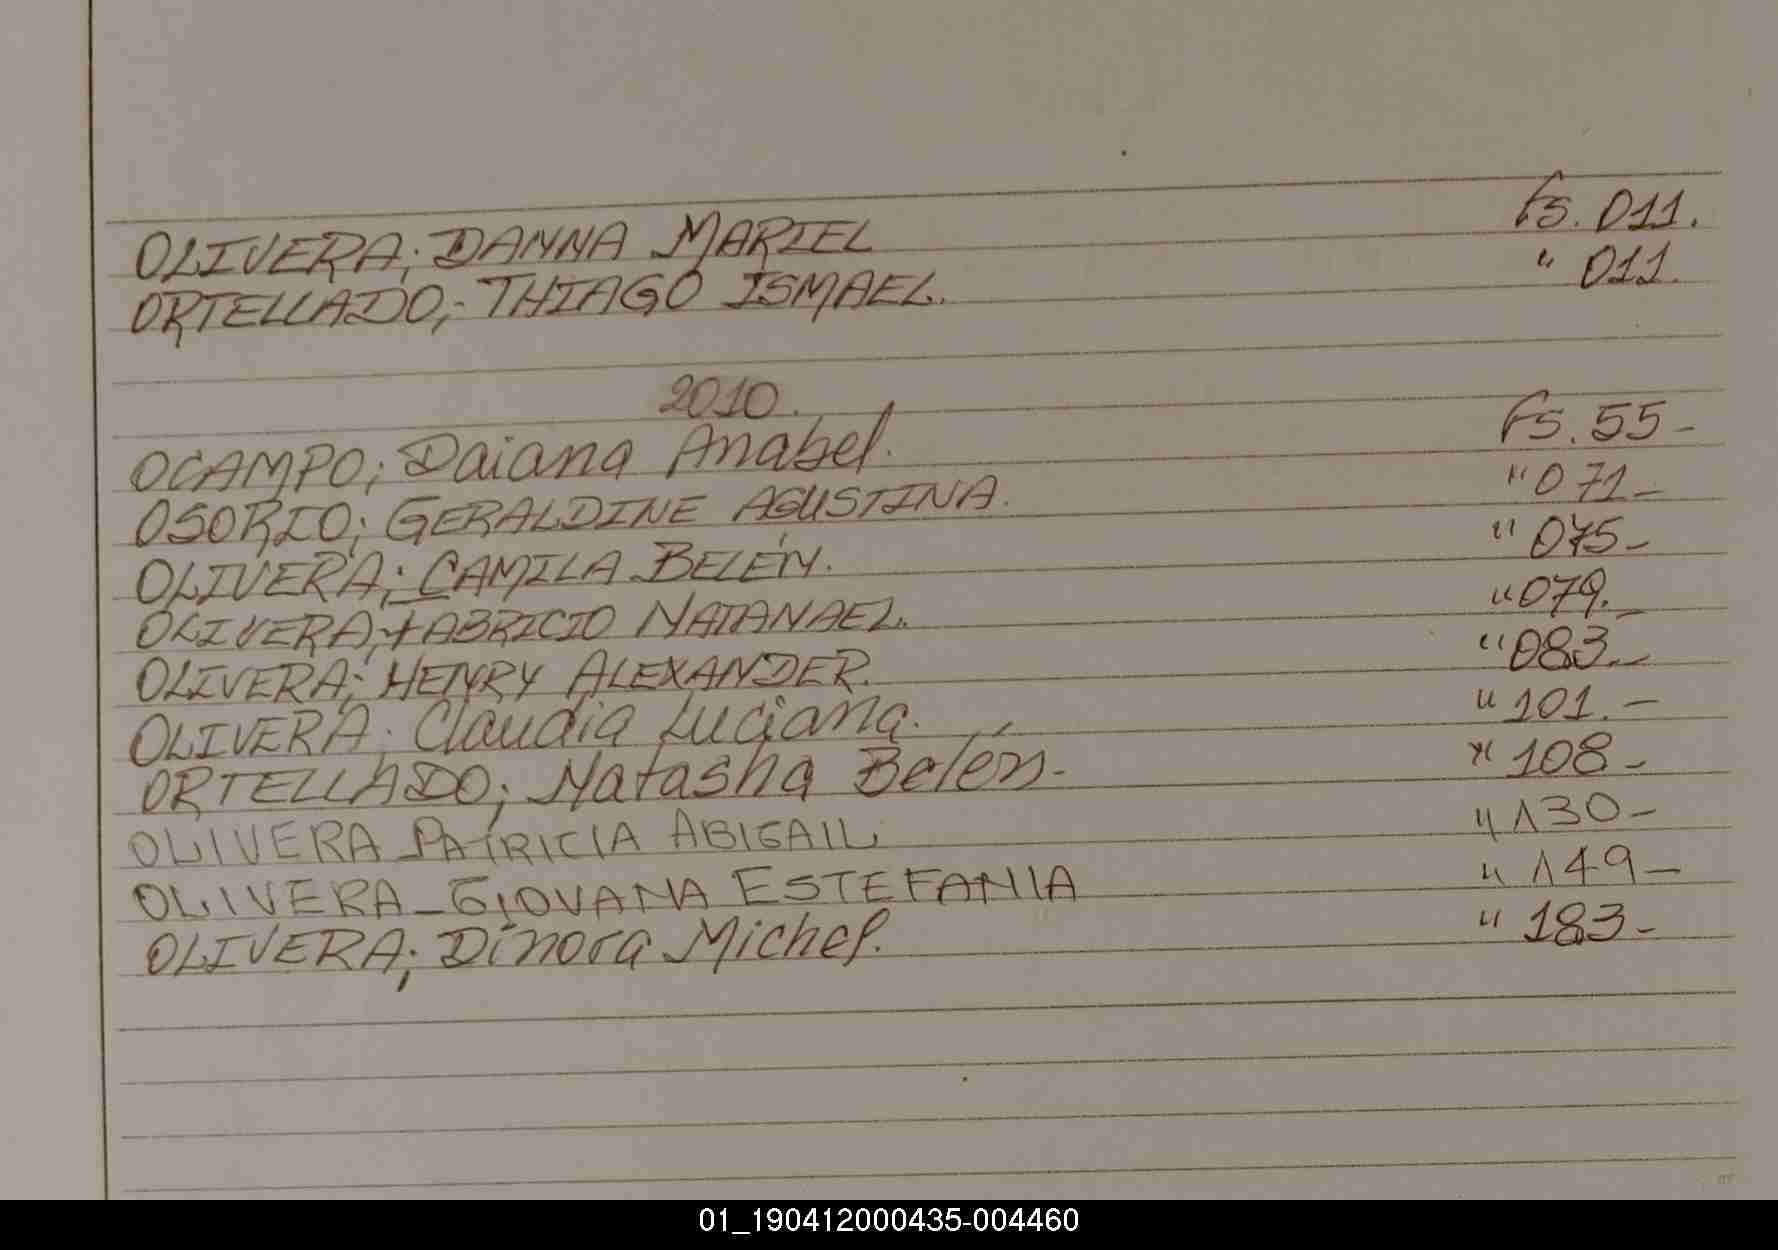 OLIVERA; DANNA MARIEL Fs. 011.
ORTELLADO,- THIAGO ISMAEL. " 011.
2010.
OCAMPO; Daiana Anabel. Fs. 55-
OSORIO; GERALDINE AGUSTINA. " 071-
OLIVERA; CAMILA BELÉN. " 075-
OLIVERA, FABRICIO NATANAEL. " 079.-
OLIVERA; HENRY ALEXANDER. " 083.-
OLIVERA. Claudia Luciana. " 101.-
ORTELLADO; Natasha Belén.- " 108-
OLIVERA PATRICIA ABIGAIL " 130-
OLIVERA - GIOVANA ESTEFANIA " 149-
OLIVERA; Dinora Michel. " 183-
01_190412000435-004460